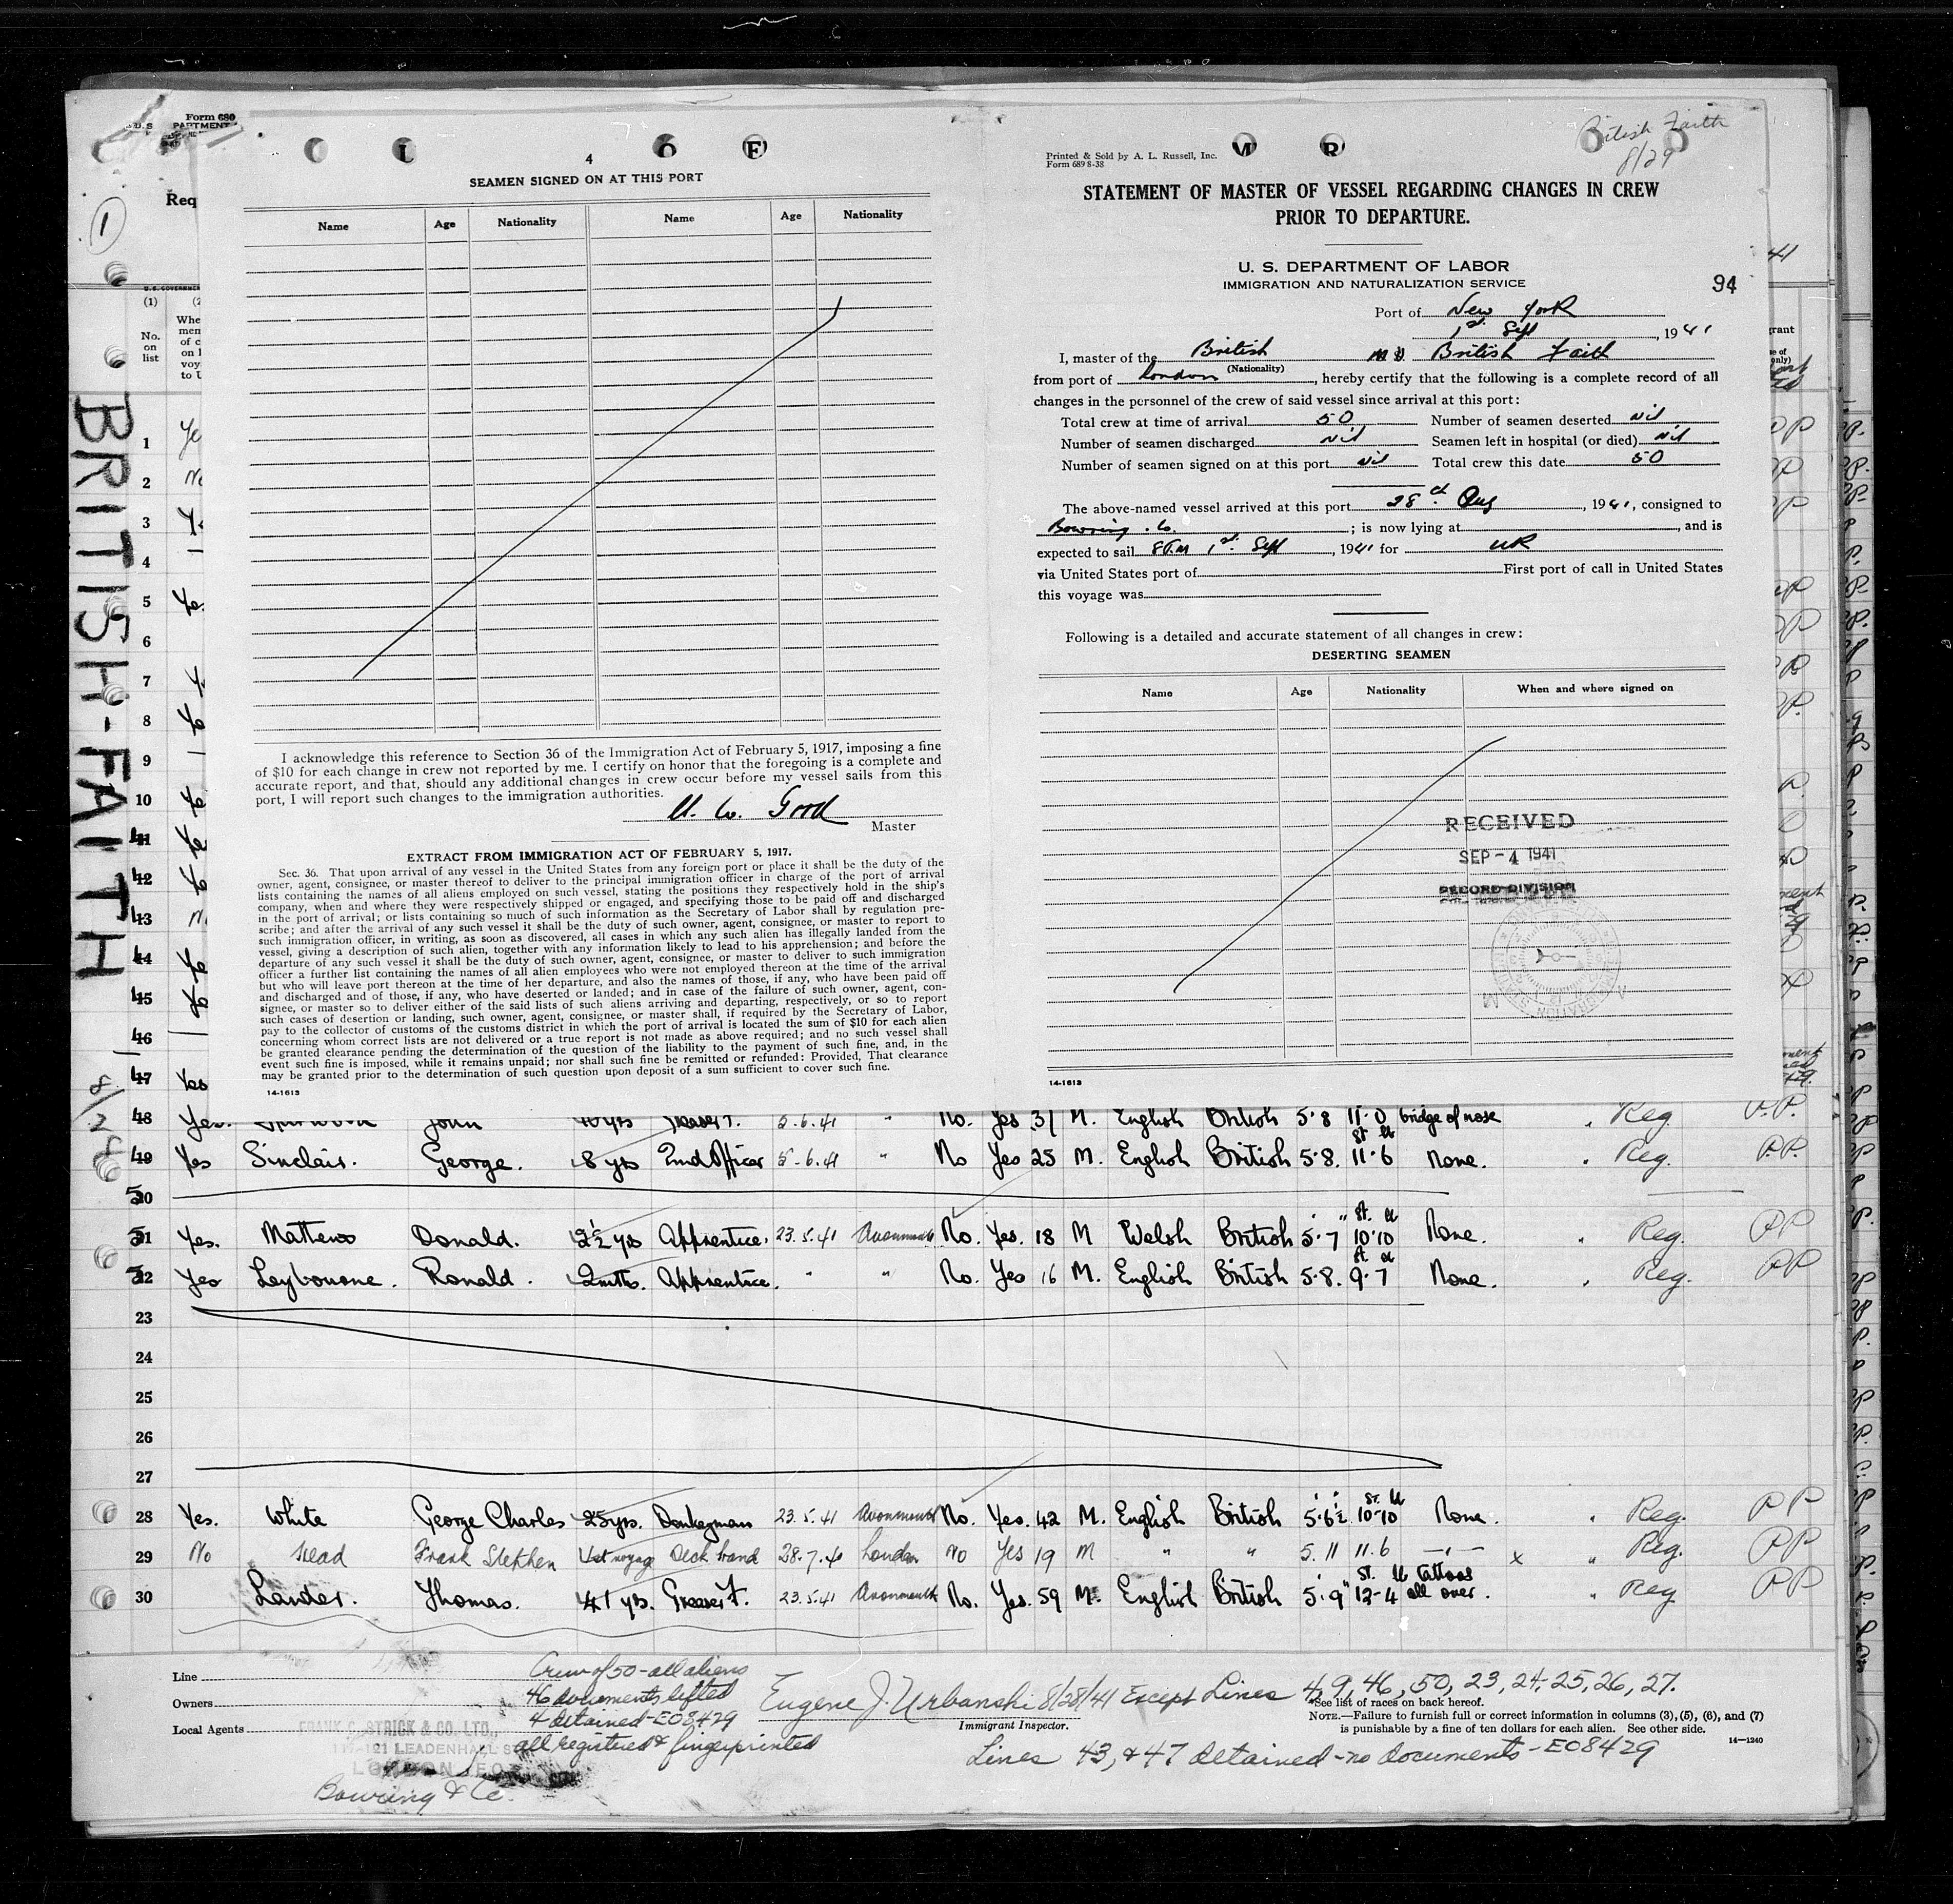 British Faith
8/29
Form 680
U. S.
PARTMENT
Req
1
BRITISH-FAITH
4
SEAMEN SIGNED ON AT THIS PORT
Name Age Nationality Name Age Nationality
I acknowledge this reference to Section 36 of the Immigration Act of February 5, 1917, imposing a fine
of $10 for each change in crew not reported by me. I certify on honor that the foregoing is a complete and
accurate report, and that, should any additional changes in crew occur before my vessel sails from this
port, I will report such changes to the immigration authorities.
Good
Master
EXTRACT FROM IMMIGRATION ACT OF FEBRUARY 5, 1917.
Sec. 36. That upon arrival of any vessel in the United States from any foreign port or place it shall be the duty of the
owner, agent, consignee, or master thereof to deliver to the principal immigration officer in charge of the port of arrival
lists containing the names of all aliens employed on such vessel, stating the positions they respectively hold in the ship's
company, when and where they were respectively shipped or engaged, and specifying those to be paid off and discharged
in the port of arrival; or lists containing so much of such information as the Secretary of Labor shall by regulation pre-
scribe; and after the arrival of any such vessel it shall be the duty of such owner, agent, consignee, or master to report to
such immigration officer, in writing, as soon as discovered, all cases in which any such alien has illegally landed from the
vessel, giving a description of such alien, together with any information likely to lead to his apprehension; and before the
departure of any such vessel it shall be the duty of such owner, agent, consignee, or master to deliver to such immigration
officer a further list containing the names of all alien employees who were not employed thereon at the time of the arrival
but who will leave port thereon at the time of her departure, and also the names of those, if any, who have been paid off
and discharged and of those, if any, who have deserted or landed; and in case of the failure of such owner, agent, con-
signee, or master so to deliver either of the said lists of such aliens arriving and departing, respectively, or so to report
such cases of desertion or landing, such owner, agent, consignee, or master shall, if required by the Secretary of Labor,
pay to the collector of customs of the customs district in which the port of arrival is located the sum of $10 for each alien
concerning whom correct lists are not delivered or a true report is not made as above required; and no such vessel shall
be granted clearance pending the determination of the question of the liability to the payment of such fine, and, in the
event such fine is imposed, while it remains unpaid; nor shall such fine be remitted or refunded: Provided, That clearance
may be granted prior to the determination of such question upon deposit of a sum sufficient to cover such fine.
14-1613
Printed & Sold by A. L. Russell, Inc.
Form 689 8-38
STATEMENT OF MASTER OF VESSEL REGARDING CHANGES IN CREW
PRIOR TO DEPARTURE.
U. S. DEPARTMENT OF LABOR
IMMIGRATION AND NATURALIZATION SERVICE
94
Port of New York
1st Sept, 1941
I, master of the British M V British Faith
(Nationality)
from port of London, hereby certify that the following is a complete record of all
changes in the personnel of the crew of said vessel since arrival at this port:
Total crew at time of arrival 50 Number of seamen deserted Nil
Number of seamen discharged Nil Seamen left in hospital (or died) Nil
Number of seamen signed on at this port Nil Total crew this date 50
The above-named vessel arrived at this port 28 Aug, 1941, consigned to
Bowring Co.; is now lying at, and is
expected to sail 8 P.M 1st Sept, 1941 for UK
via United States port of First port of call in United States
this voyage was
Following is a detailed and accurate statement of all changes in crew:
DESERTING SEAMEN
Name Age Nationality When and where signed on
RECEIVED
SEP -4 1941
RECORD DIVISION
14-1613
(1)
No.
on
list
1
2
3
4
5
6
7
8
9
10
48 Yes. John Greaser 5.6.41 " No. Yes 31 M. English British 5·8 11·0 bridge of nose Reg. P.P.
49 Yes Sinclair. George. 8 yrs 2nd Officer 5-6.41 " No Yes 25 M. English British 5·8. 11·6 None. Reg. P.P.
50
51 Yes. Mathews Donald. 2½ yrs Apprentice. 23.5.41 Avonmouth No. Yes. 18 M Welsh British 5·7 10·10 None. Reg. PP
52 Yes Leybourne. Ronald. 2mths. Apprentice. " " No. Yes 16 M. English British 5·8. 9·7 None. Reg. PP
23
24
25
26
27
28 Yes. White George Charles 25yrs. Donkeyman 23.5.41 Avonmouth No. Yes. 42 M. English British 5·6½ 10-10 None. Reg. PP
29 No Mead Frank Stephen 1st voyage Deck hand 28.7.4 London No Yes 19 M " " 5.11 11.6 x " Reg. PP
30 Lander. Thomas. 41 yrs. Greaser F. 23.5.41 Avonmouth No. Yes. 59 M. English British 5·9" 12-4 Tattoos all over. " Reg PP
Line
Owners
Local Agents
FRANK C. STRICK & CO. LTD.,
LEADENHALL ST
LONDON
Bowring & Co.
Crew of 50 - all aliens
46 documents lifted
4 detained - E08429
all registered & fingerprinted
Eugene J. Urbanski 8/28/41 Except Lines 4, 9, 46, 50, 23, 24, 25, 26, 27.
Immigrant Inspector.
*See list of races on back hereof.
NOTE.—Failure to furnish full or correct information in columns (3), (5), (6), and (7)
is punishable by a fine of ten dollars for each alien. See other side.
14—1240
Lines 43, & 47 detained - no documents - E08429